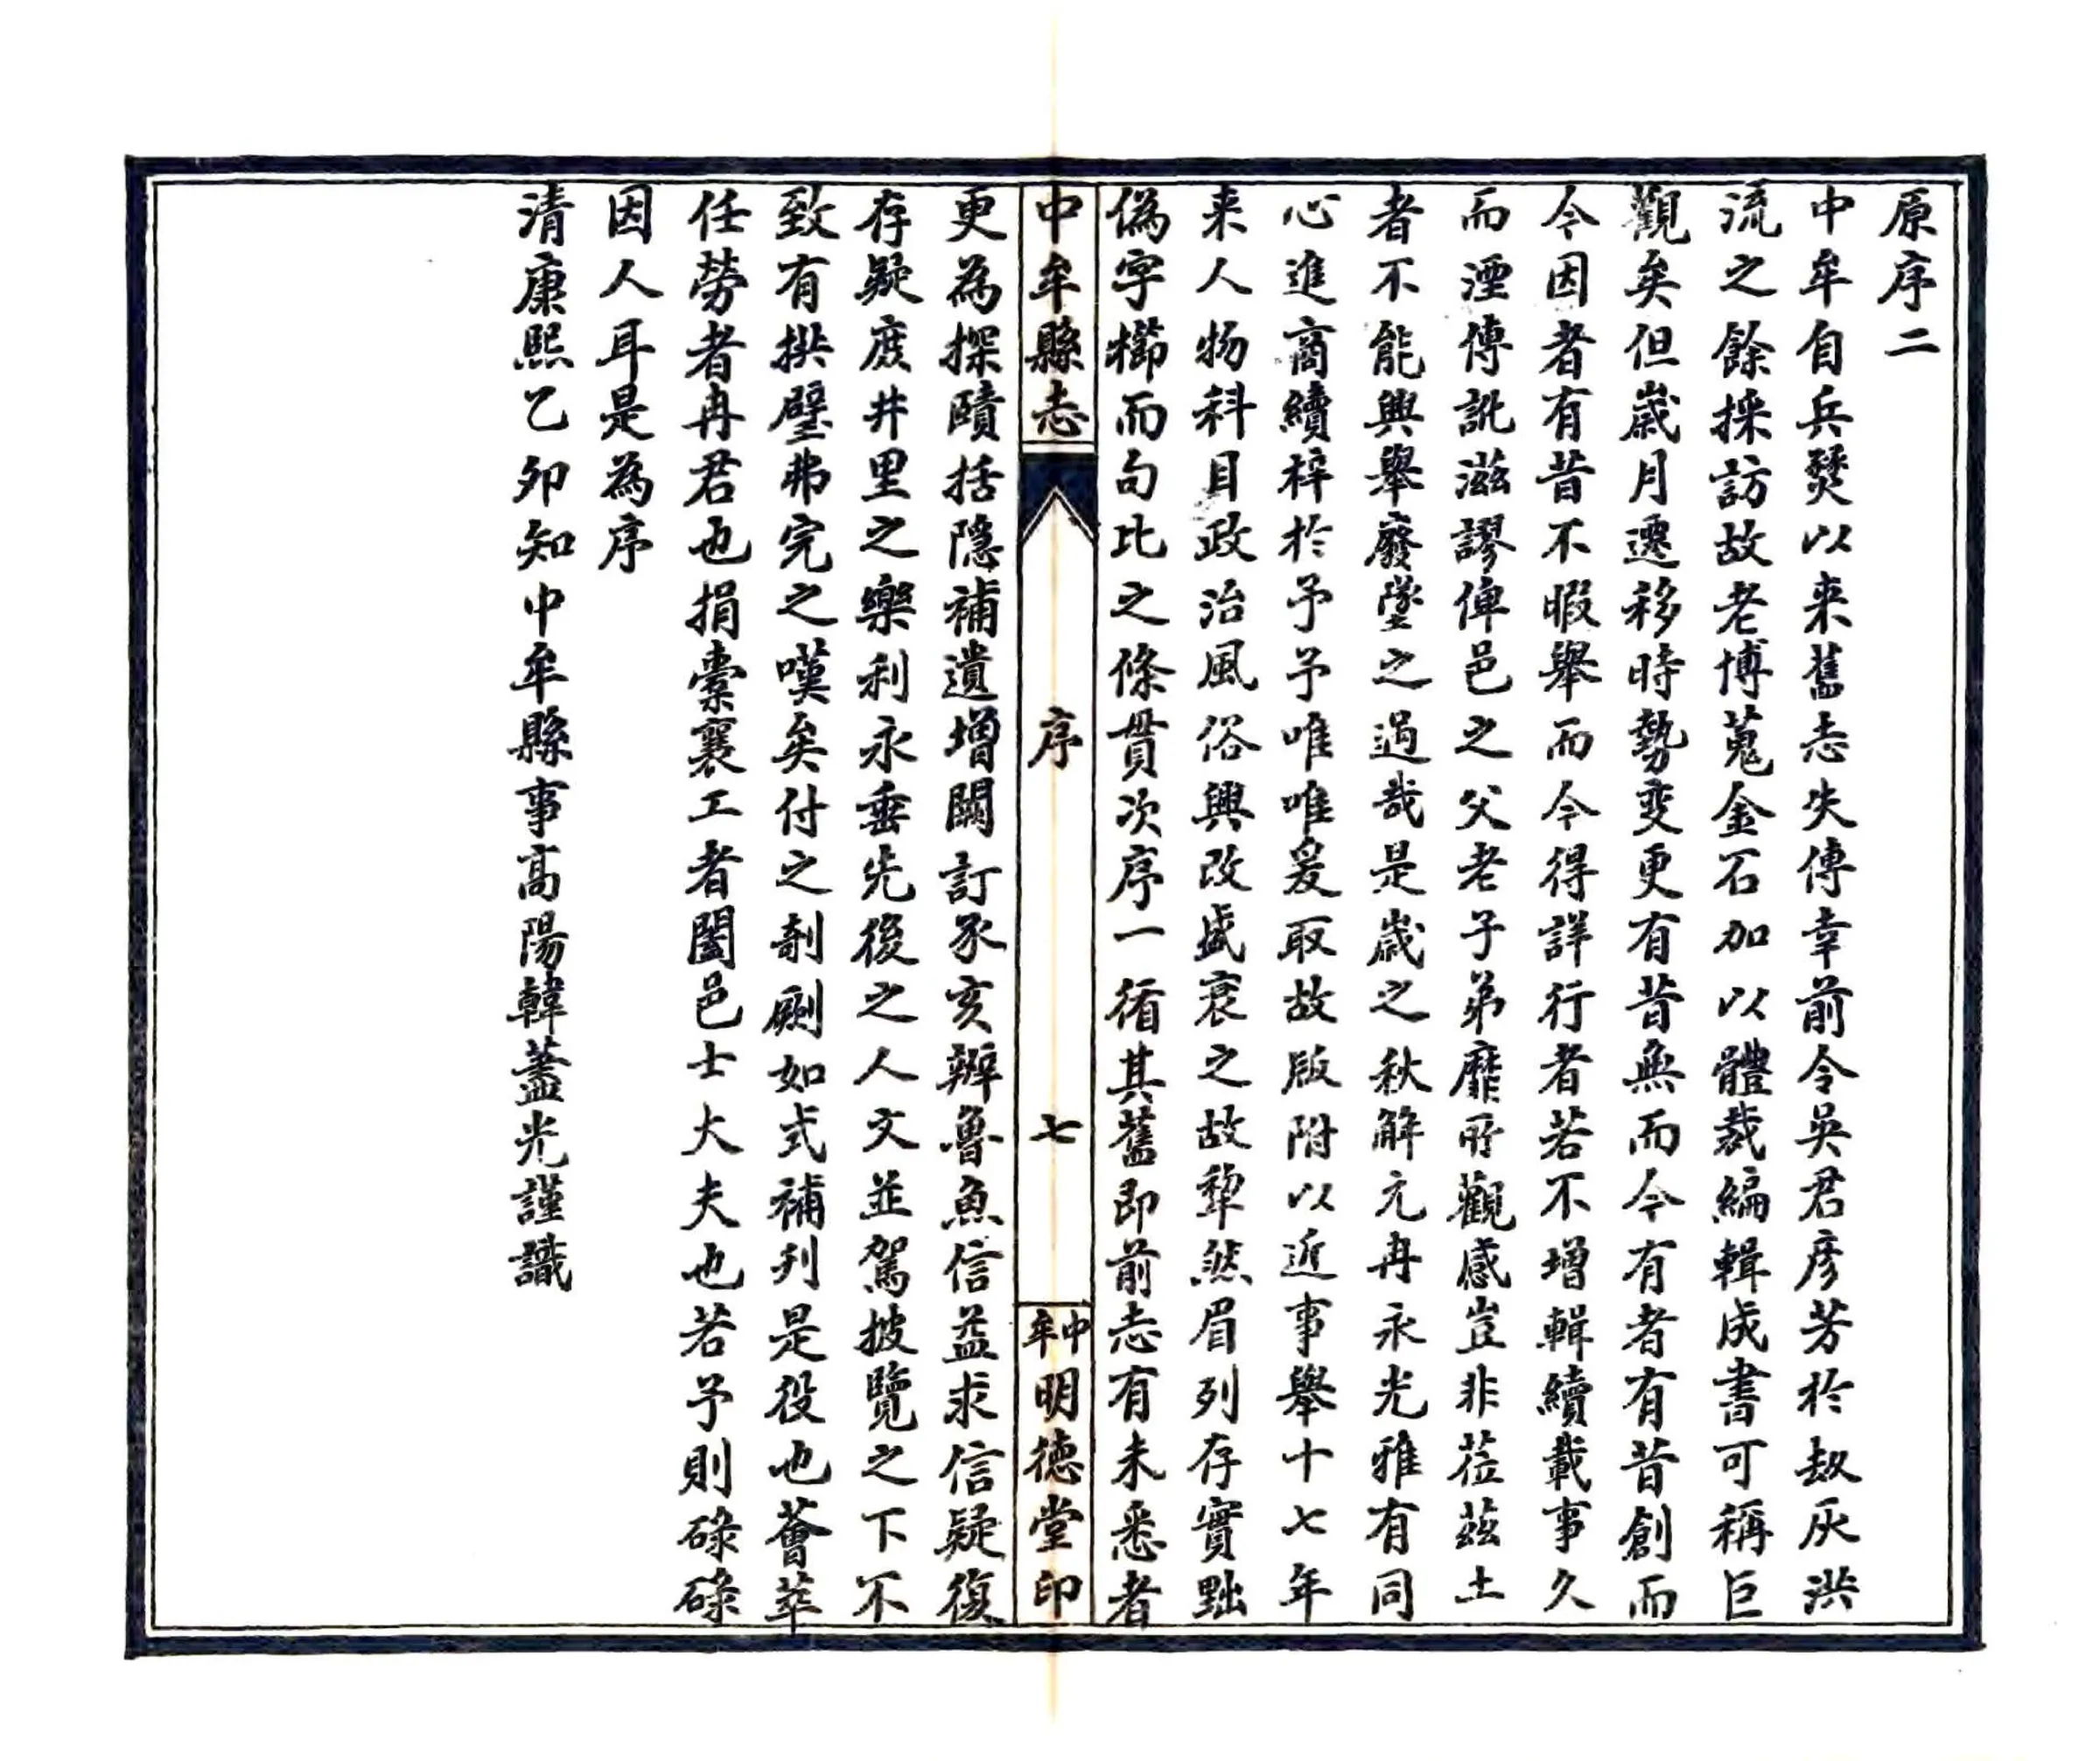 原序二
中牟自兵燹以来舊志失傳幸前令吳君彥芳於劫灰洪
流之餘採訪故老博蒐金石加以體裁編輯成書可稱巨
觀矣但歲月遷移時勢变更有昔無而今有者有昔創而
今因者有昔不暇舉而今得詳行者若不增輯續載事久
而湮傳訛滋謬俾邑之父老子弟靡所觀感豈非莅茲土
者不能興舉廢墜之過哉是歲之秋解元冉永光雅有同
心進商續梓於予予唯唯爰取故版附以近事舉十七年
来人物科目政治風俗興改盛衰之故犂然眉列存實黜
偽字櫛而句比之條貫次序一循其舊即前志有未悉者
中牟縣志
序
七
中牟明德堂印
更為探賾括隱補遺增闕訂豕亥辨魯魚信益求信疑復
存疑庶井里之樂利永垂先後之人文並駕披覽之下不
致有拱璧弗完之嘆矣付之剞劂如式補刋是役也薈萃
任勞者冉君也捐橐襄工者闔邑士大夫也若予則碌碌
因人耳是為序
清康熙乙卯知中牟縣事高陽韓藎光謹識